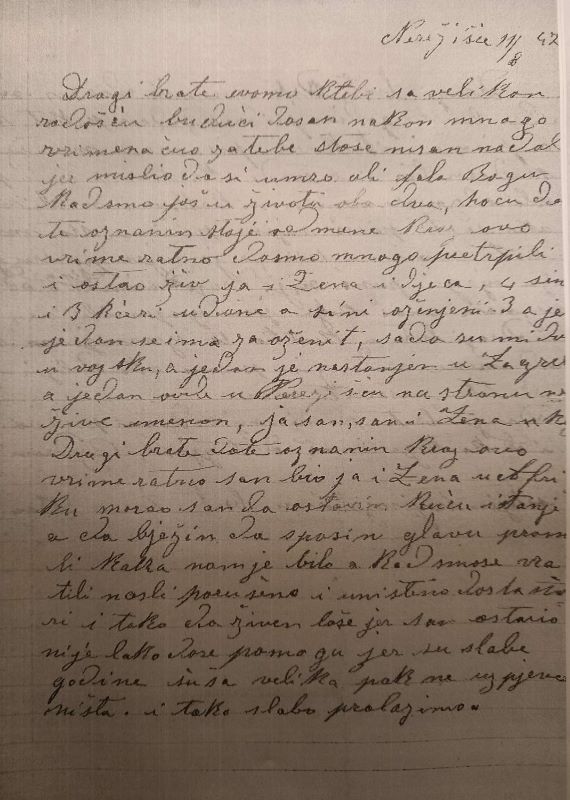 Nerežišće 11/8 47
Dragi brate evomo ktebi sa velikon
radošću budući dosan nakon mnogo
vrimena čuo zatebe štose nisan nadal
jer mislio da si umro ali fala Bogu
kadsmo još u životu oba dva, hoću da
te oznanin štoje sa mene kroz ovo
vrime ratno dasmo mnogo pretrpili
i ostao živ ja i Žena i djeca, 4 sin
i 3 kćeri udane a sini oženjeni 3 a je
jedan seima za oženit, sada su mi dv
u vojsku, a jedan je nastanjen u Zagre
a jedan ovde u Nerežišću na stranu
žive samnon, ja san, san i Žena u k
Dragi brate date oznanin kroz ovo
vrime ratno san bio ja i Žena u Afri
ku morao san da ostavin kuću i stanje
a da bježin da spasin glavu
li kakva nam je bila a kadsmose vra
tili našli porušeno i uništeno dosta
ri i tako da živen loše jer san ostario
nije lako dase pomogu jer su slabe
godine suša velika pak ne uspjeva
ništa. i tako slabo prolazimo.